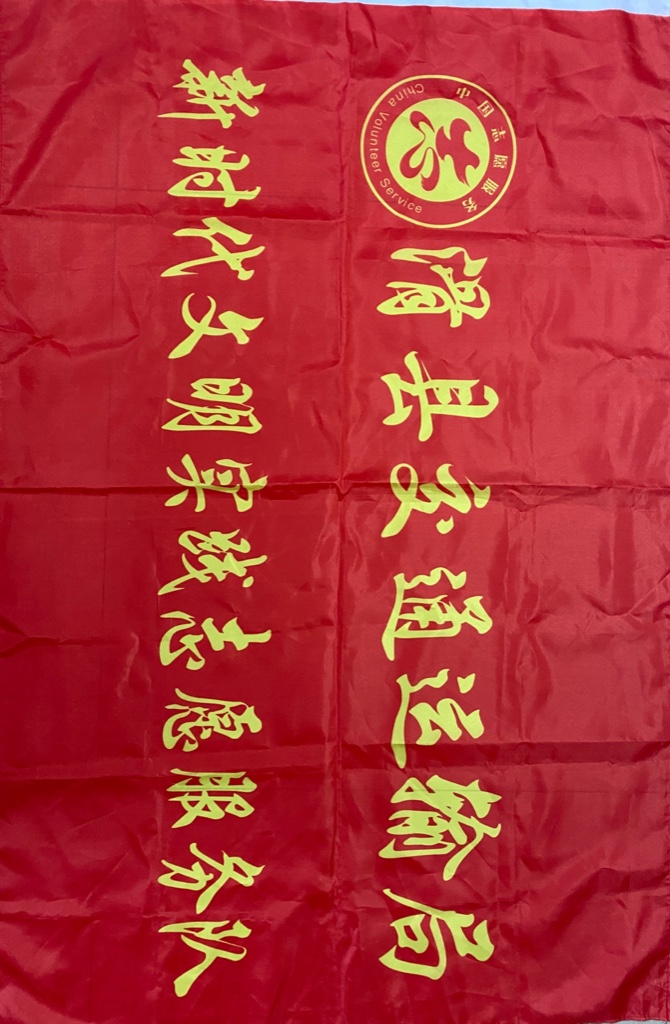 中国志愿服务
China Volunteer Service
滑县交通运输局
新时代文明实践志愿服务队